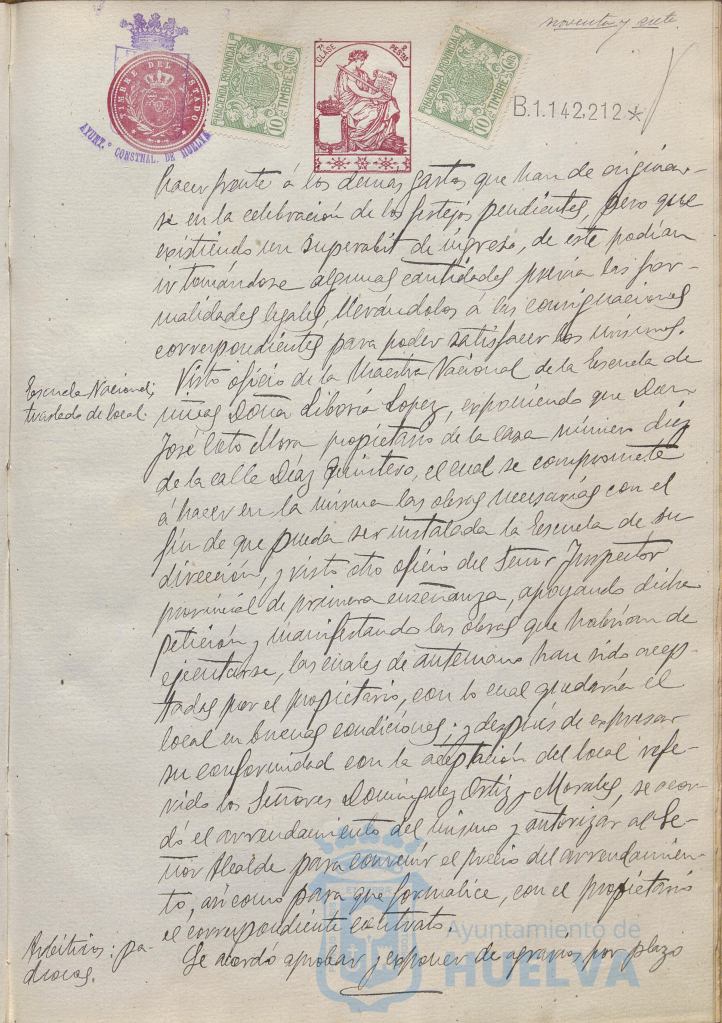 noventa y siete
TIMBRE DEL ESTADO
AYUNT.º CONSTNAL. DE HUELVA
HACIENDA PROVINCIAL
10 CTS TIMBRE
7ª CLASE 2 PESTAS
HACIENDA PROVINCIAL
10 CTS TIMBRE
B.1.142,212*
hacer frente á los demás gastos que han de originar-
se en la celebración de los festejos pendientes, pero que
existiendo un superabit de ingreso, de este podían
ir tomándose algunas cantidades previa las for-
malidades legales, llevándolos á las consignaciones
correspondientes para poder satisfacer los mismos.
Escuela Nacional;
traslado de local.
Visto oficio de la Maestra Nacional de la Escuela de
niñas Doña Liboria Lopez, exponiendo que Don
José Coto Mora propietario de la casa número diez
de la calle Díaz Quintero, el cual se compromete
á hacer en la misma las obras necesarias con el
fin de que pueda ser instalada la Escuela de su
dirección, y visto otro oficio del Señor Inspector
provincial de primera enseñanza, apoyando dicha
petición y manifestando las obras que habrian de
ejecutarse, las cuales de antemano han sido acep-
tadas por el propietario, con lo cual quedaría el
local en buenas condiciones; y después de expresar
su conformidad con la aceptación del local refe-
rido los Señores Dominguez Ortiz y Morales, se acor-
dó el arrendamiento del mismo y autorizar al Se-
ñor Alcalde para convenir el precio del arrendamien-
to, asi como para que formalice, con el propietario
el correspondiente contrato.
Arbitrios: pa-
drones.
Se acordó aprobar y exponer de agravios por plazo
Ayuntamiento de
HUELVA